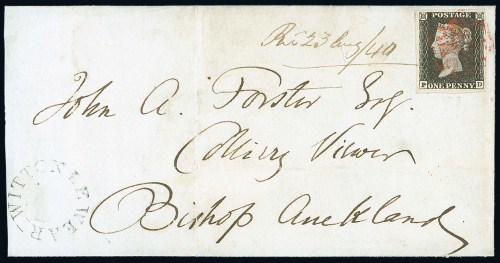 POSTAGE
P D
ONE PENNY
23 Aug/40
John A. Forster Esq.
Colliery Viewer
Bishop Auckland
WITTON LE WEAR